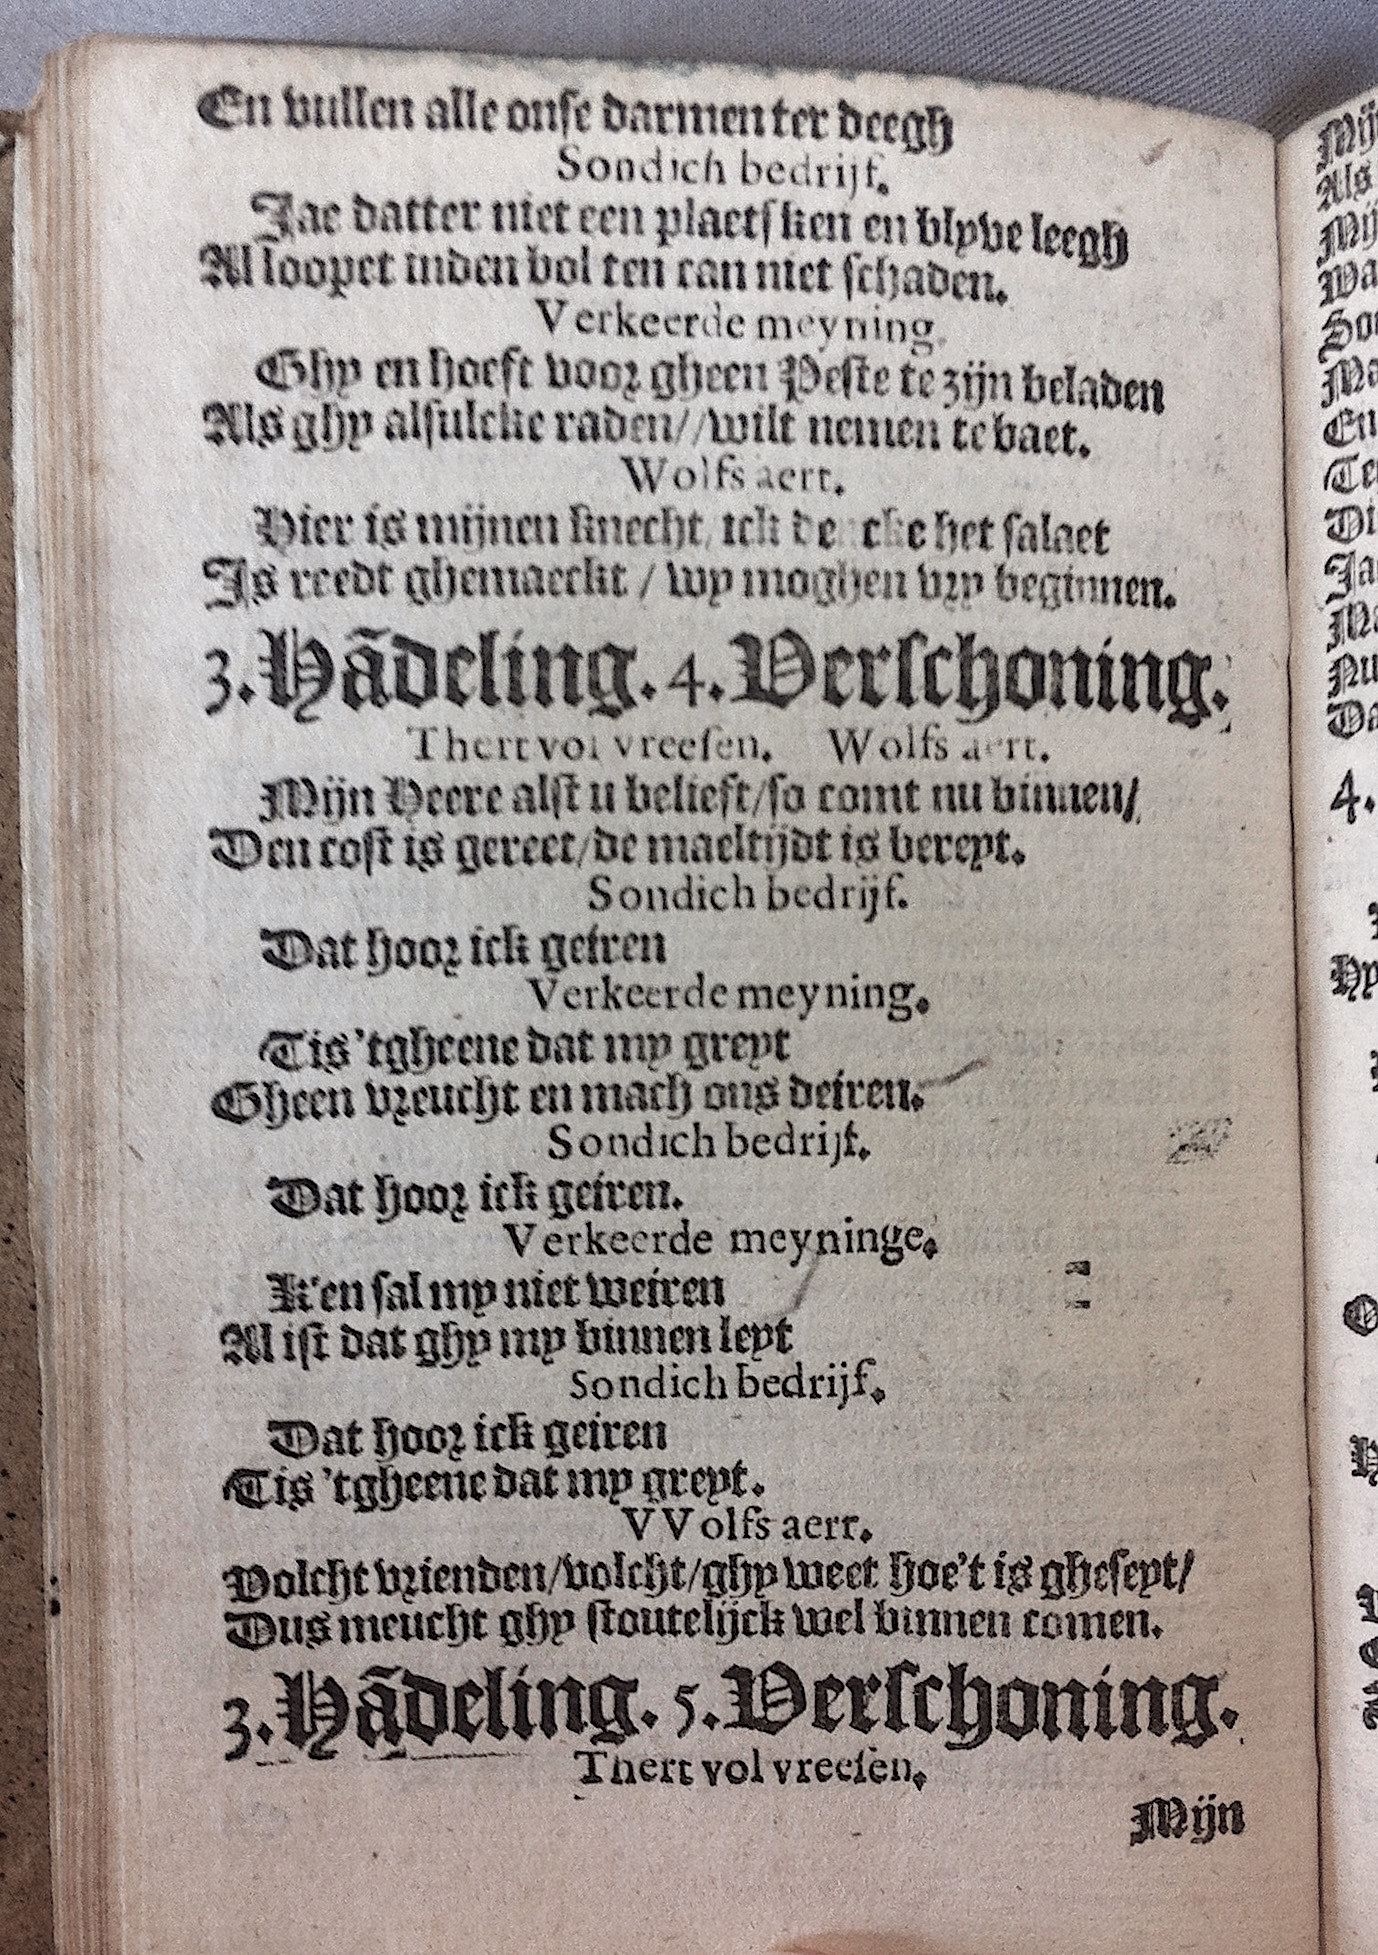 En vullen alle onse darmen ter deegh
Sondich bedrijf.
Jae datter niet een plaetsken en blyve leegh
Al loopet inden bol ten can niet schaden.
Verkeerde meyning.
Ghy en hoeft voor gheen Peste te zijn beladen
Als ghy alsulcke raden//wilt nemen te baet.
Wolfs aert.
Hier is mijnen knecht, ick dencke het salaet
Is reedt ghemaeckt / wy moghen vry beginnen.
3. Hãdeling. 4. Verschoning.
Thert vol vreesen. Wolfs aert.
Mijn Heere alst u belieft/so comt nu binnen/
Den cost is gereet/de maeltijdt is bereyt.
Sondich bedrijf.
Dat hoor ick geiren
Verkeerde meyning.
Tis 'tgheene dat my greyt
Gheen vreucht en mach ons deiren.
Sondich bedrijf.
Dat hoor ick geiren.
Verkeerde meyninge.
K'en sal my niet weiren
Al ist dat ghy my binnen leyt
Sondich bedrijf.
Dat hoor ick geiren
Tis 'tgheene dat my greyt.
VVolfs aert.
Volcht vrienden/volcht/ghy weet hoe't is gheseyt/
Dus meucht ghy stoutelijck wel binnen comen.
3. Hãdeling. 5. Verschoning.
Thert vol vreesen.
Mijn